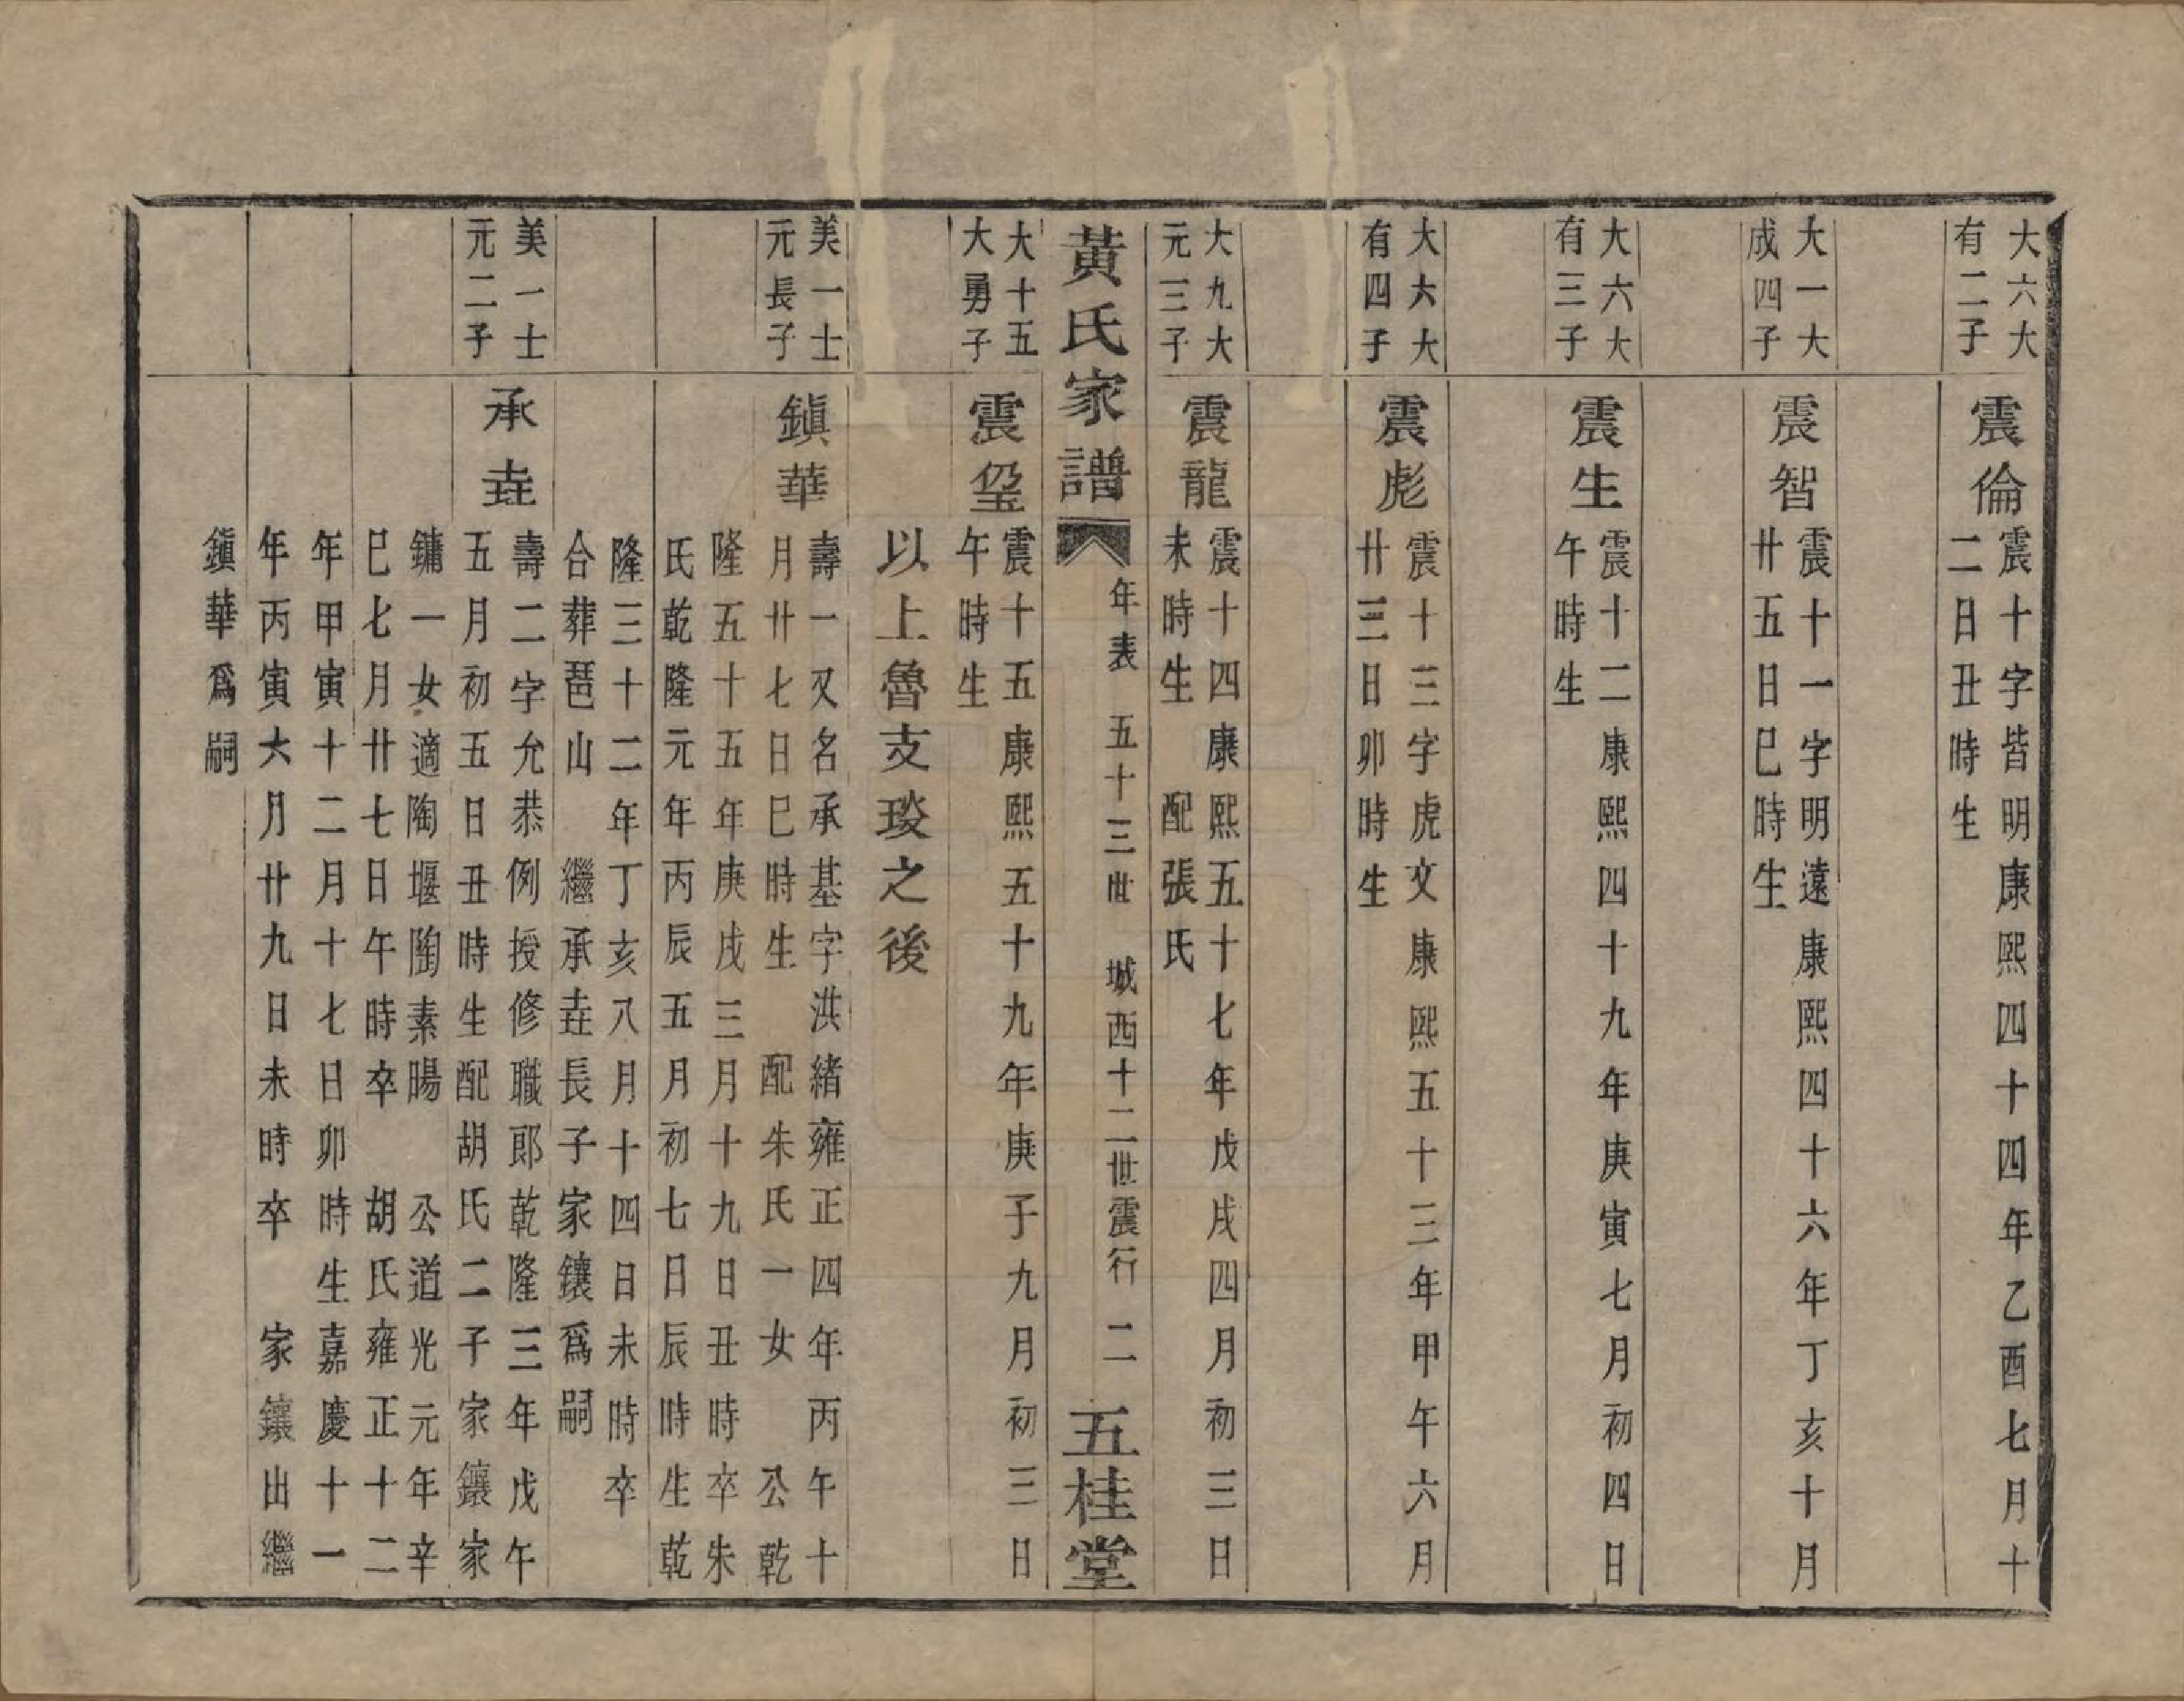 大六大
有二子
震倫
震十字皆明康熙四十四年乙酉七月十
二日丑時生
大一大
成四子
震智
震十一字明遠康熙四十六年丁亥十月
廿五日巳時生
大六大
有三子
震生
震十二康熙四十九年庚寅七月初四日
午時生
大六大
有四子
震彪
震十三字虎文康熙五十三年甲午六月
廿三日卯時生
大九大
元三子
震龍
震十四康熙五十七年戊戌四月初三日
未時生 配張氏
黃氏家譜 年表 五十三世 城西十二世震行 二 五桂堂
大十五
大勇子
震
震十五康熙五十九年庚子九月初三日
午時生
以上魯支琰之後
美一士
元長子
鎮華
壽一又名承基字洪緒雍正四年丙午十
月廿七日巳時生 配朱氏一女 公乾
隆五十五年庚戌三月十九日丑時卒朱
氏乾隆元年丙辰五月初七日辰時生乾
隆三十二年丁亥八月十四日未時卒
合葬琶山 繼承垚長子家鑲爲嗣
美一士
元二子
承垚
壽二字允恭例授修職郎乾隆三年戊午
五月初五日丑時生配胡氏二子家鑲家
鏞一女適陶堰陶素暘 公道光元年辛
巳七月廿七日午時卒 胡氏雍正十二
年甲寅十二月十七日卯時生嘉慶十一
年丙寅六月廿九日未時卒 家鑲出繼
鎮華爲嗣